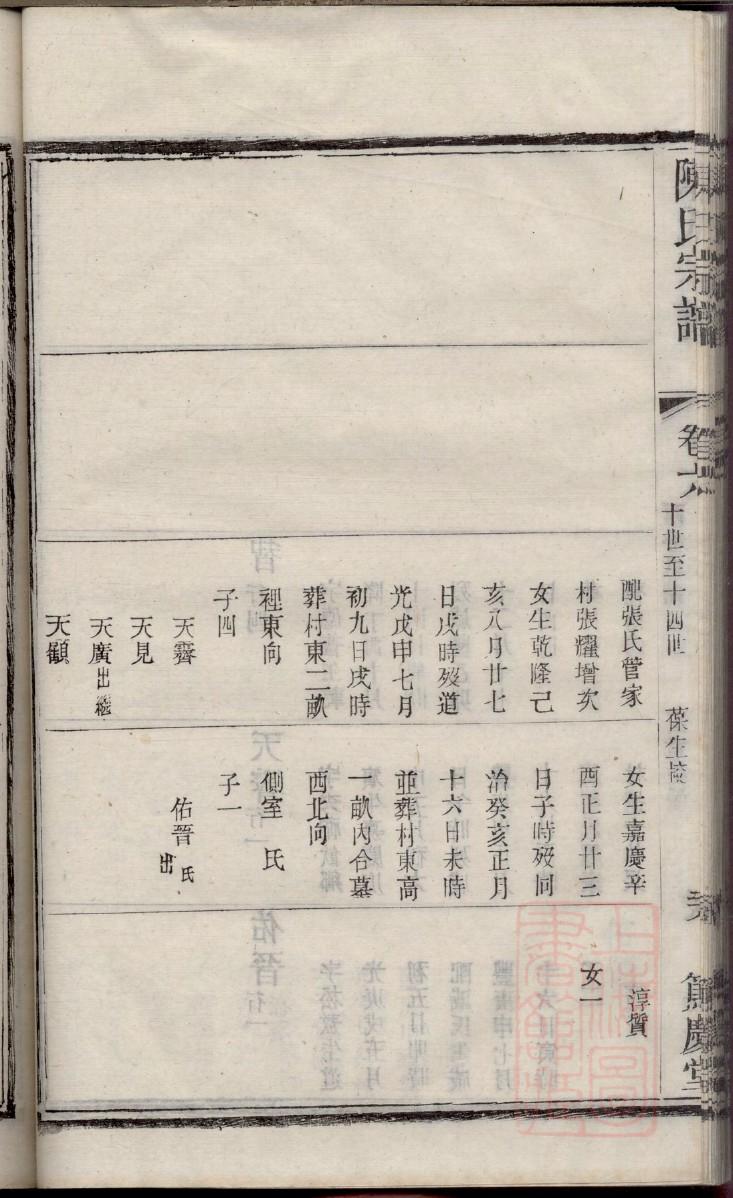 陳氏宗譜
卷六
十世至十四世
葆生陵
節慶堂
配張氏管家
村張耀增次
女生乾隆己
亥八月廿七
日戌時歿道
光戊申七月
初九日戌時
葬村東二畝
裡東向
子四
天霽
天見
天廣出繼
天顧
女生嘉慶辛
酉正月廿三
日子時歿同
治癸亥正月
十六日未時
並葬村東高
一畝內合墓
西北向
側室 氏
子一
佑晉 氏出
淳質
女一
上海圖書館藏